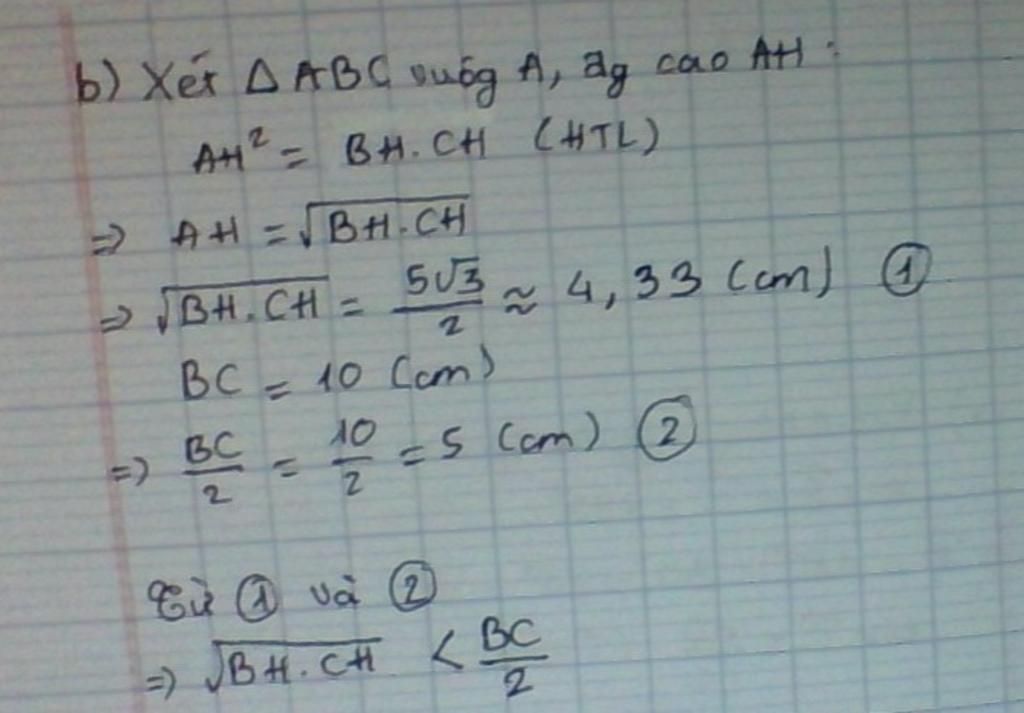 b) Xét △ ABC vuôg A, đg cao AH :
AH² = BH.CH (HTL)
=> AH = √BH.CH
=> √BH.CH = 5√3/2 ≈ 4,33 (cm) ①
BC = 10 (cm)
=> BC/2 = 10/2 = 5 (cm) ②
Từ ① và ②
=> √BH.CH < BC/2